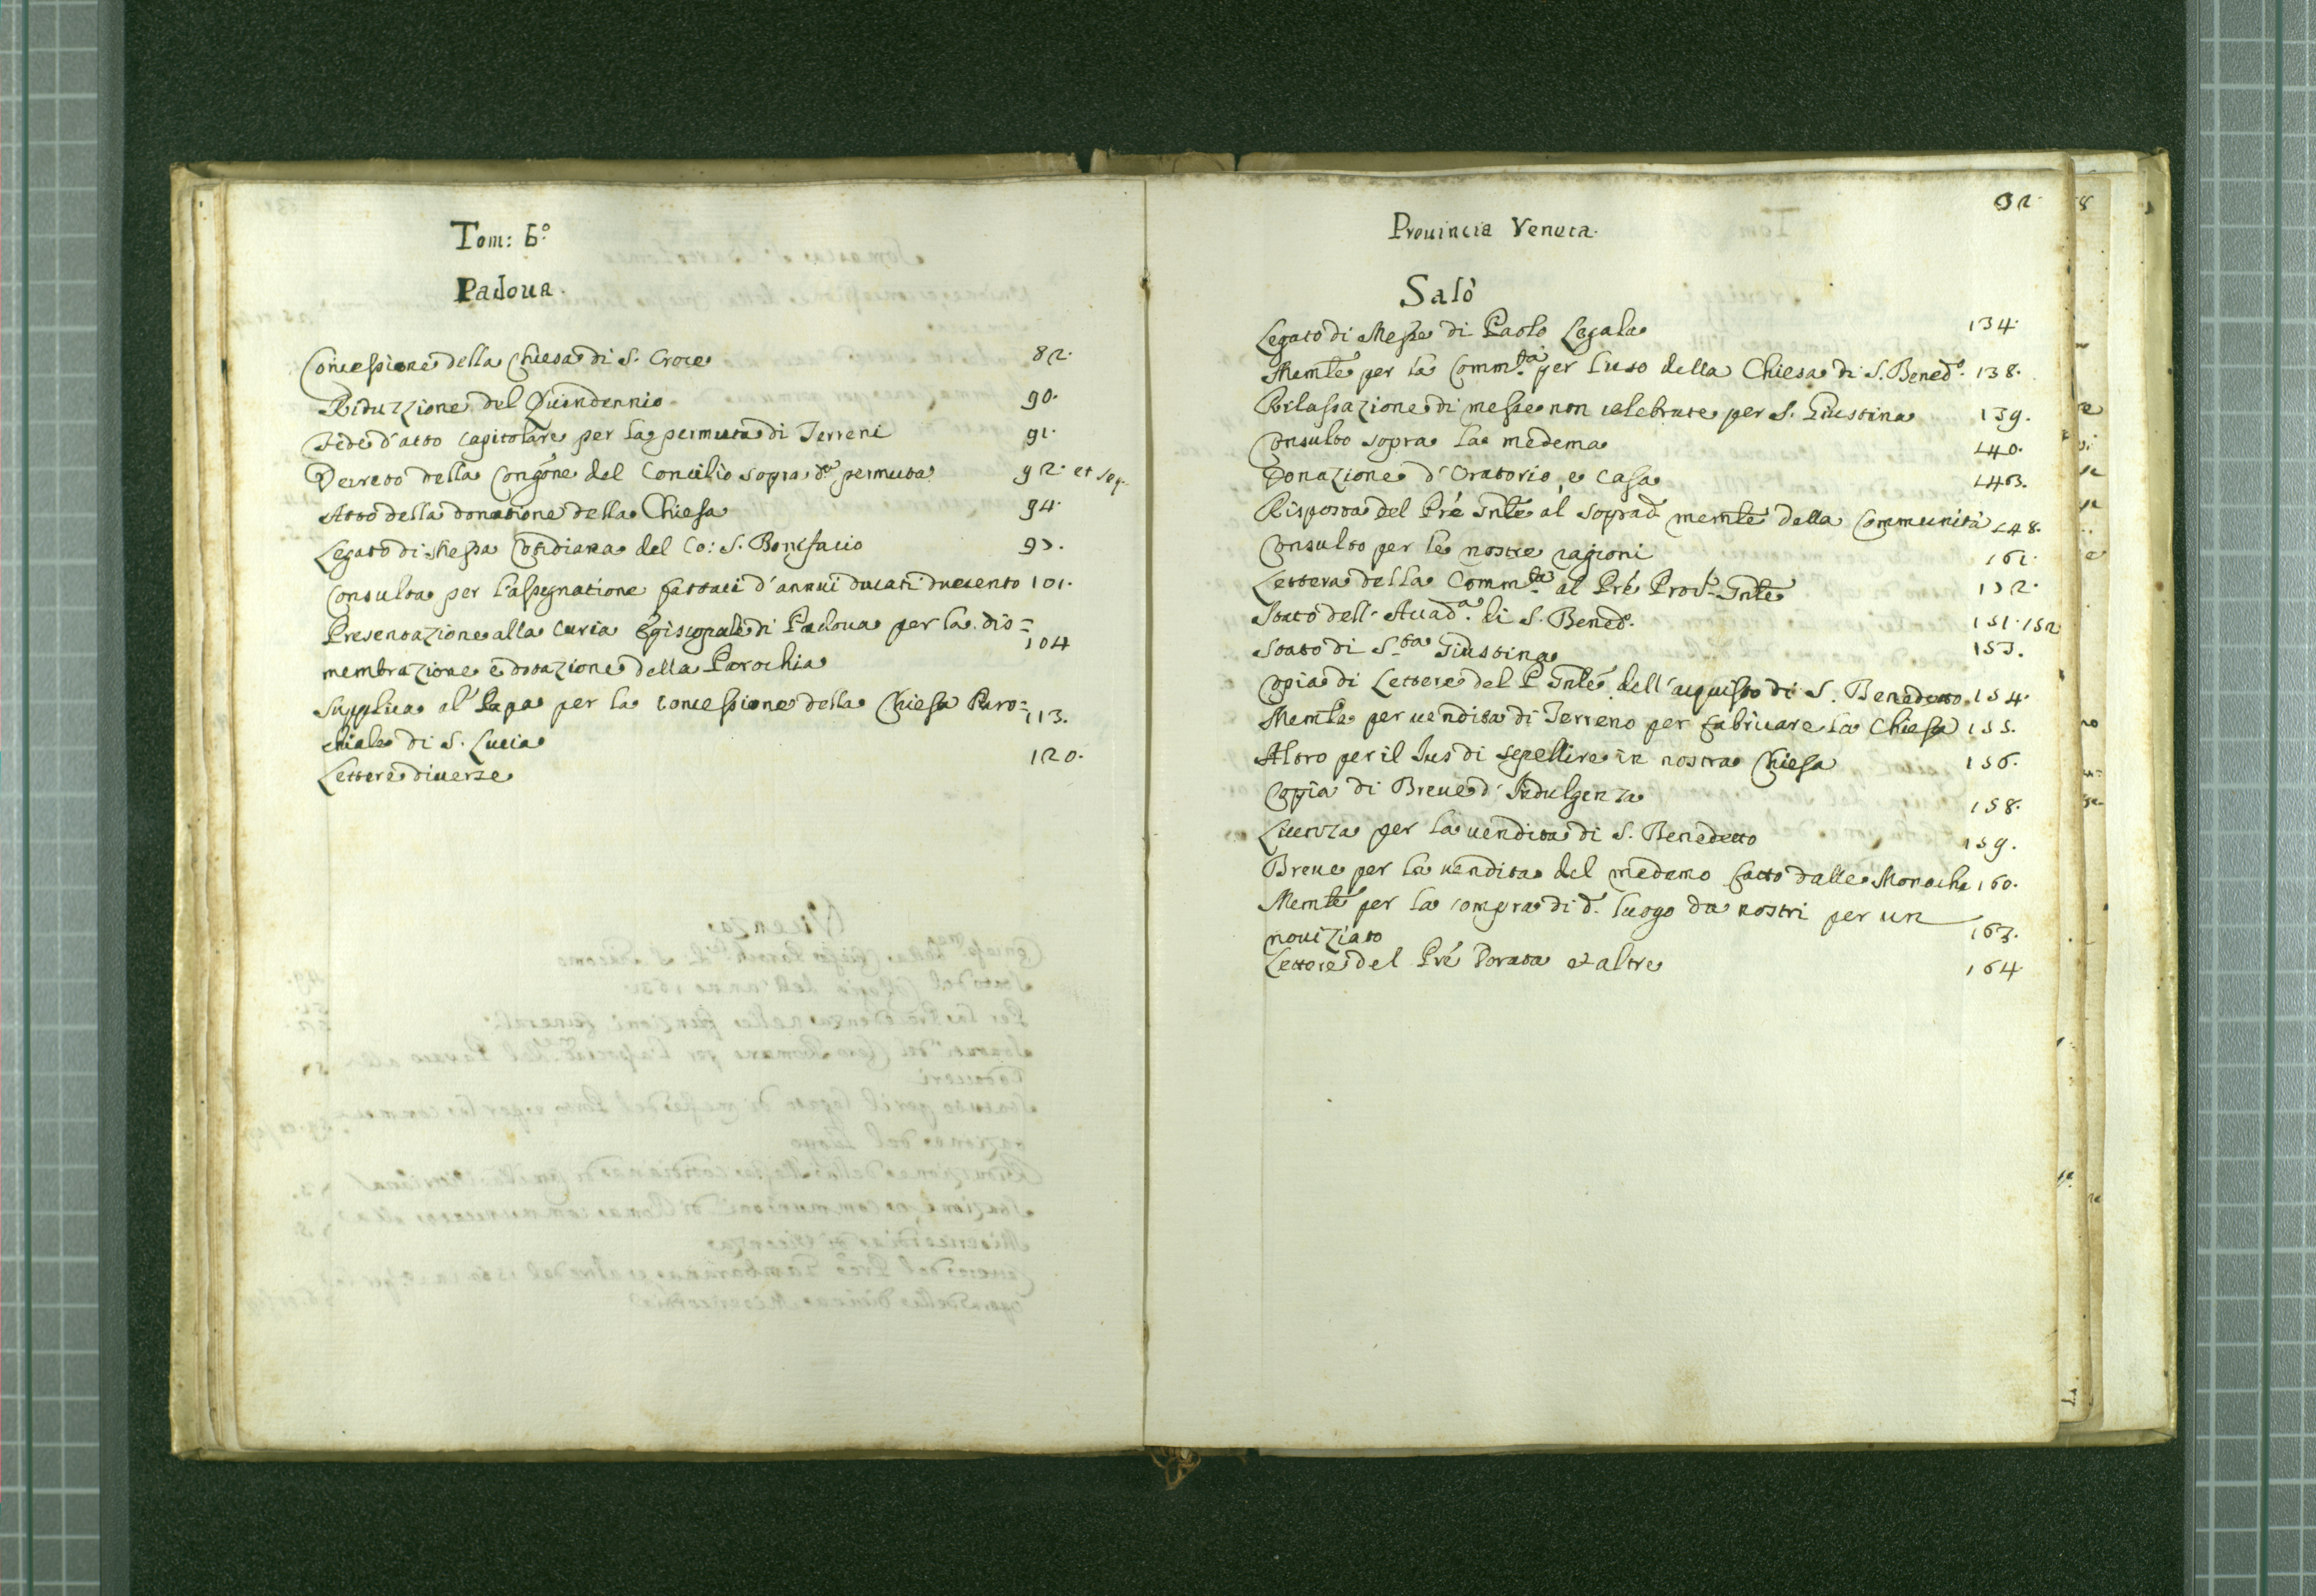 Tom: 6.º
Padoua.
Concessione della Chiesa di S. Croce 82.
Riduzzione del Quindennio 90.
Fede d'atto capitolare per la permuta di Terreni 91.
Decreto della Congne del Concilio sopra da permuta 92. et seq.
Atto della donatione della Chiesa 94.
Legato di Messa Cotidiana del Co: S. Bonifacio 95.
Consulta per l'assegnatione fattaci d'annui ducati duecento 101.
Presentazione alla Curia Episcopale di Padoua per la dis=
membrazione e dotazione della Parochia 104
Supplica al Papa per la concessione della Chiesa Paro=
chiale di S. Lucia 113.
Lettere diuerse 120.
Prouincia Veneta.
32.
Salò
Legato di Messe di Paolo Cagala 134.
Memle per la Comm.tà per l'uso della Chiesa di S. Bened.º 138.
Rilassazione di messe non celebrate per S. Giustina 139.
Consulto sopra la medema 140.
Donazione d'Oratorio, e Casa 143.
Risposta del Prê Gnle al soprad.º memle della Communità 148.
Consulto per le nostre ragioni 161.
Lettera della Comm.tà al Prê Proc.r Gnle 152.
Stato dell'Accad.ª di S. Bened.º 151. 152
Stato di S.ta Giustina 153.
Copia di Lettere del P. Gnle dell'acquisto di S. Benedetto 154.
Memle per uendita di Terreno per fabricare la Chiesa 155.
Altro per il Jus di sepellire in nostra Chiesa 156.
Copia di Breue d'Indulgenza 158.
Licenza per la uendita di S. Benedetto 159.
Breue per la uendita del medemo fatto dalle Monache 160.
Memle per la compra di d.º luogo da nostri per un
nouiziato 163.
Lettere del Prê Dorata et altre 164